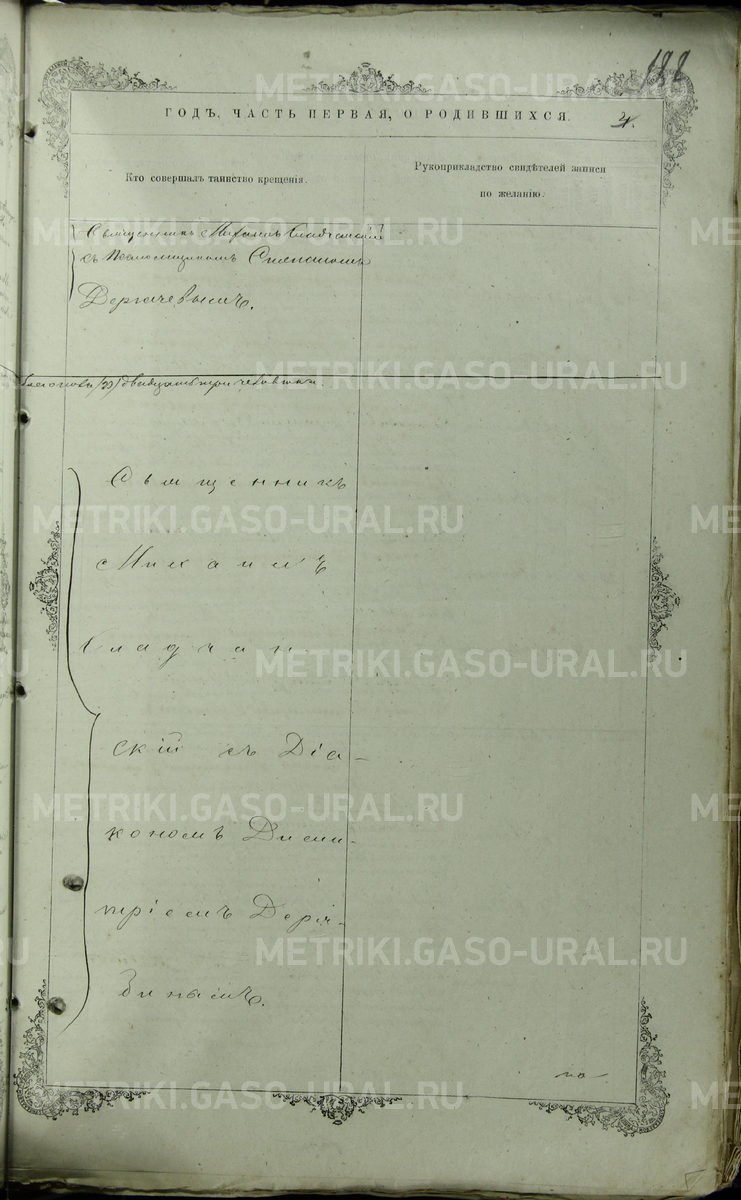 188
ГОДЪ, ЧАСТЬ ПЕРВАЯ, О РОДИВШИХСЯ.
4.
Кто совершалъ таинство крещенія.
Рукоприкладство свидѣтелей записи
по желанію.
Священникъ Михаилъ
съ Псаломщикомъ Степаномъ
Дергачевымъ.
двадцать три человѣка.
Священникъ
Михаилъ
Сладчан-
скій съ Діа-
кономъ Дими-
тріемъ Деря-
бинымъ.
METRIKI.GASO-URAL.RU